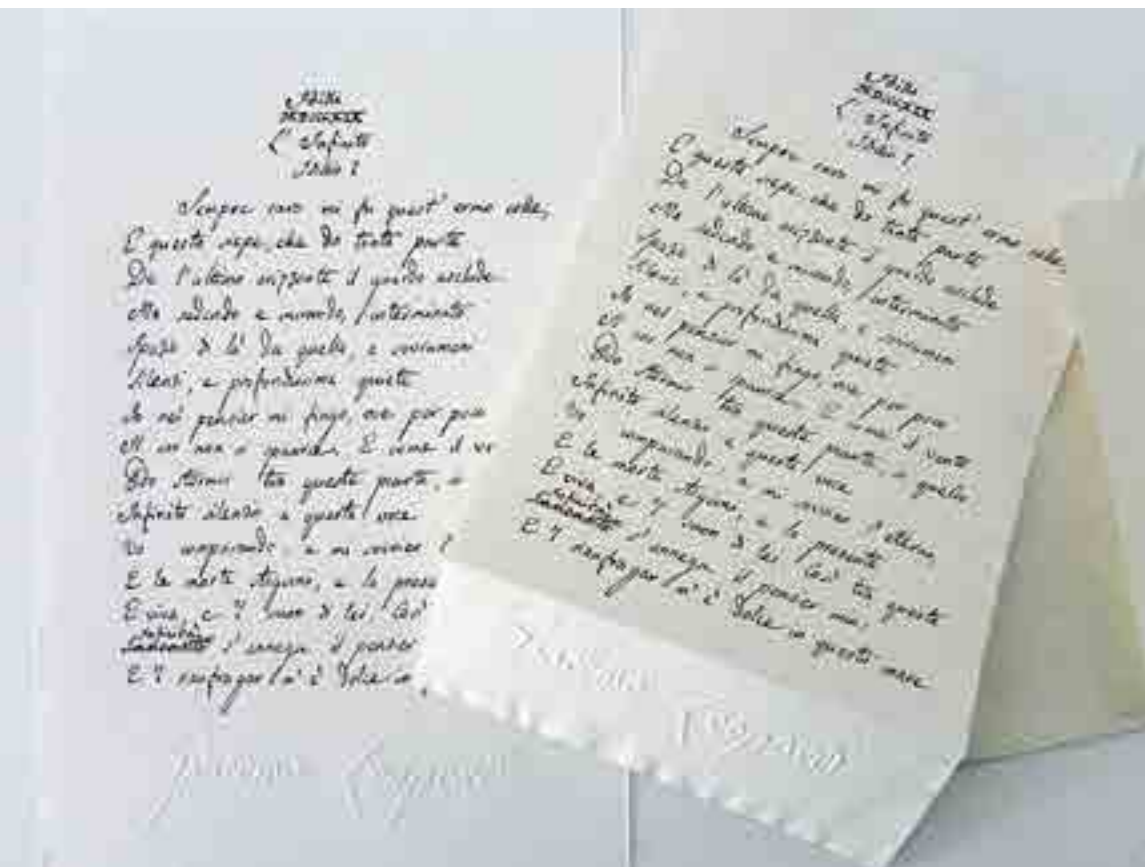 Idilli
MDCCCXIX
L'Infinito
Idillio I
Sempre caro mi fu quest'ermo colle,
E questa siepe, che da tanta parte
De l'ultimo orizzonte il guardo esclude.
Ma sedendo e mirando, l'interminato
Spazio di là da quella, e sovrumani
Silenzi, e profondissima quiete
Io nel pensier mi fingo, ove per poco
Il cor non si spaura. E come il ve
Odo stormir tra queste piante,
Infinito silenzio a questa voce
Vo comparando: e mi sovvien l
E le morte stagioni, e la prese
E viva, e 'l suon di lei. Così
infinità
s'annega il pensier
E 'l naufragar m'è dolce in
Giacomo Leopardi
Idilli
MDCCCXIX
L'Infinito
Idillio I
Sempre caro mi fu quest'ermo colle,
E questa siepe, che da tanta parte
De l'ultimo orizzonte il guardo esclude.
Ma sedendo e mirando, l'interminato
Spazio di là da quella, e sovrumani
Silenzi, e profondissima quiete
Io nel pensier mi fingo, ove per poco
Il cor non si spaura. E come il vento
Odo stormir tra queste piante, io quello
Infinito silenzio a questa voce
Vo comparando: e mi sovvien l'eterno,
E le morte stagioni, e la presente
E viva, e 'l suon di lei. Così tra questa
infinità
s'annega il pensier mio,
E 'l naufragar m'è dolce in questo mare.
Giacomo Leopardi